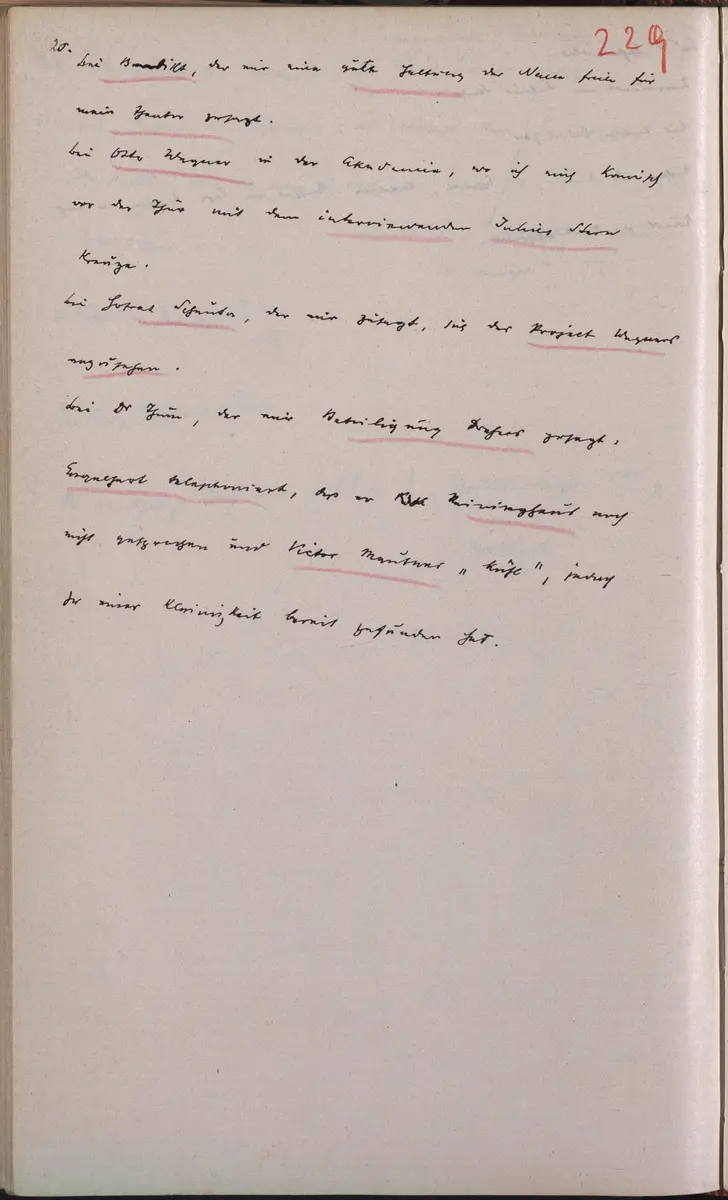 229
20.
bei Benedikt, der mir eine gute Haltung der Neuen freien für
mein Theater zusagt.
bei Otto Wagner in der Akademie, wo ich mich komisch
vor der Thür mit dem interviewenden Julius Stern
kreuze.
bei Hofrat Schauta, der mir zusagt, sich das Project Wagners
anzusehen.
bei Dr Thum, der mir Beteiligung Drehers zusagt.
Engelhart telephoniert, dass er Reininghaus noch
nicht gesprochen und Victor Mautner „kühl", jedoch
zu einer Kleinigkeit bereit gefunden hat.